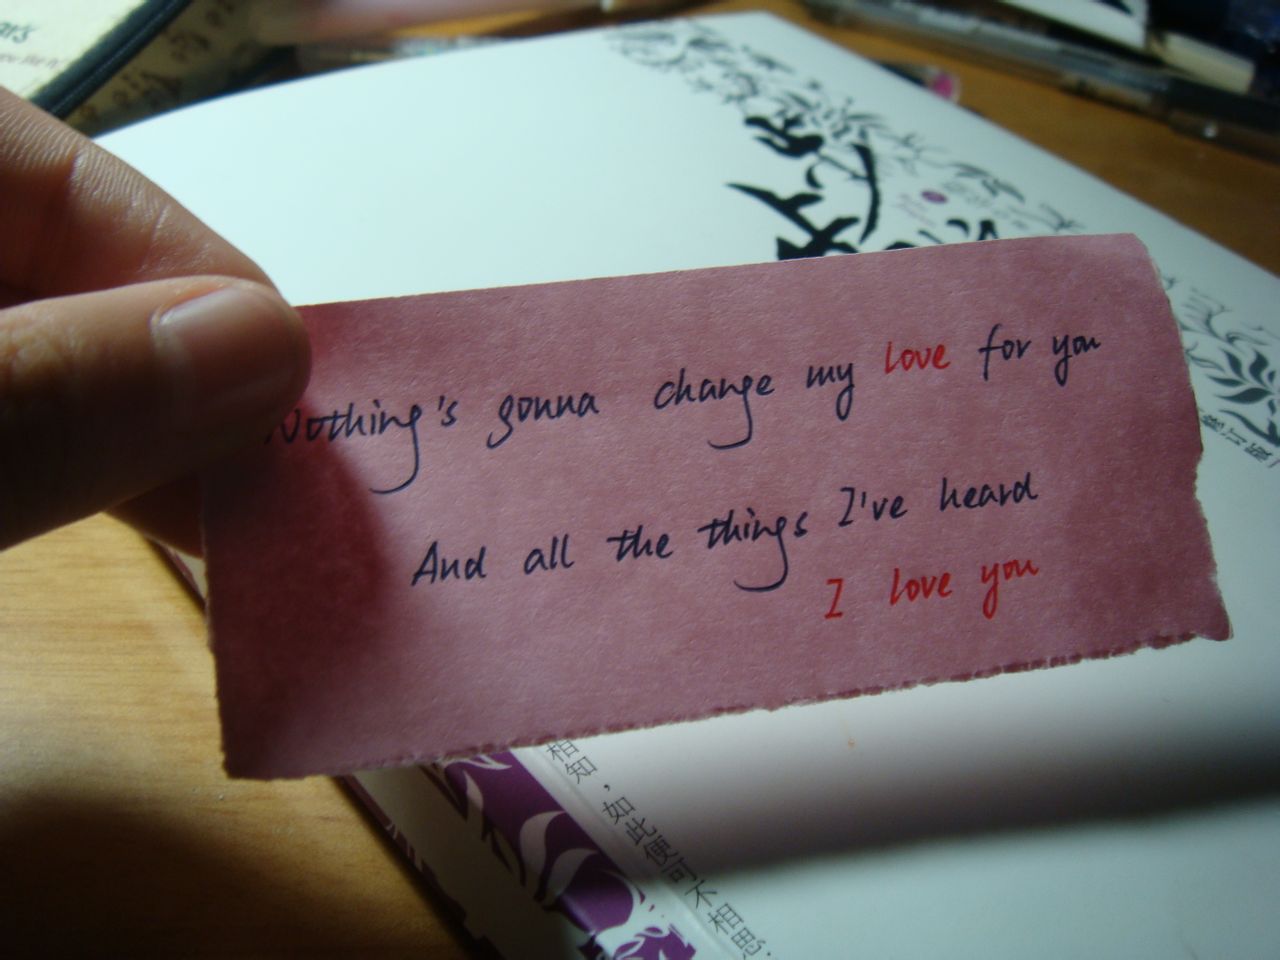 Nothing's gonna change my love for you
And all the things I've heard
I love you
相知，如此便可不相思
修订版